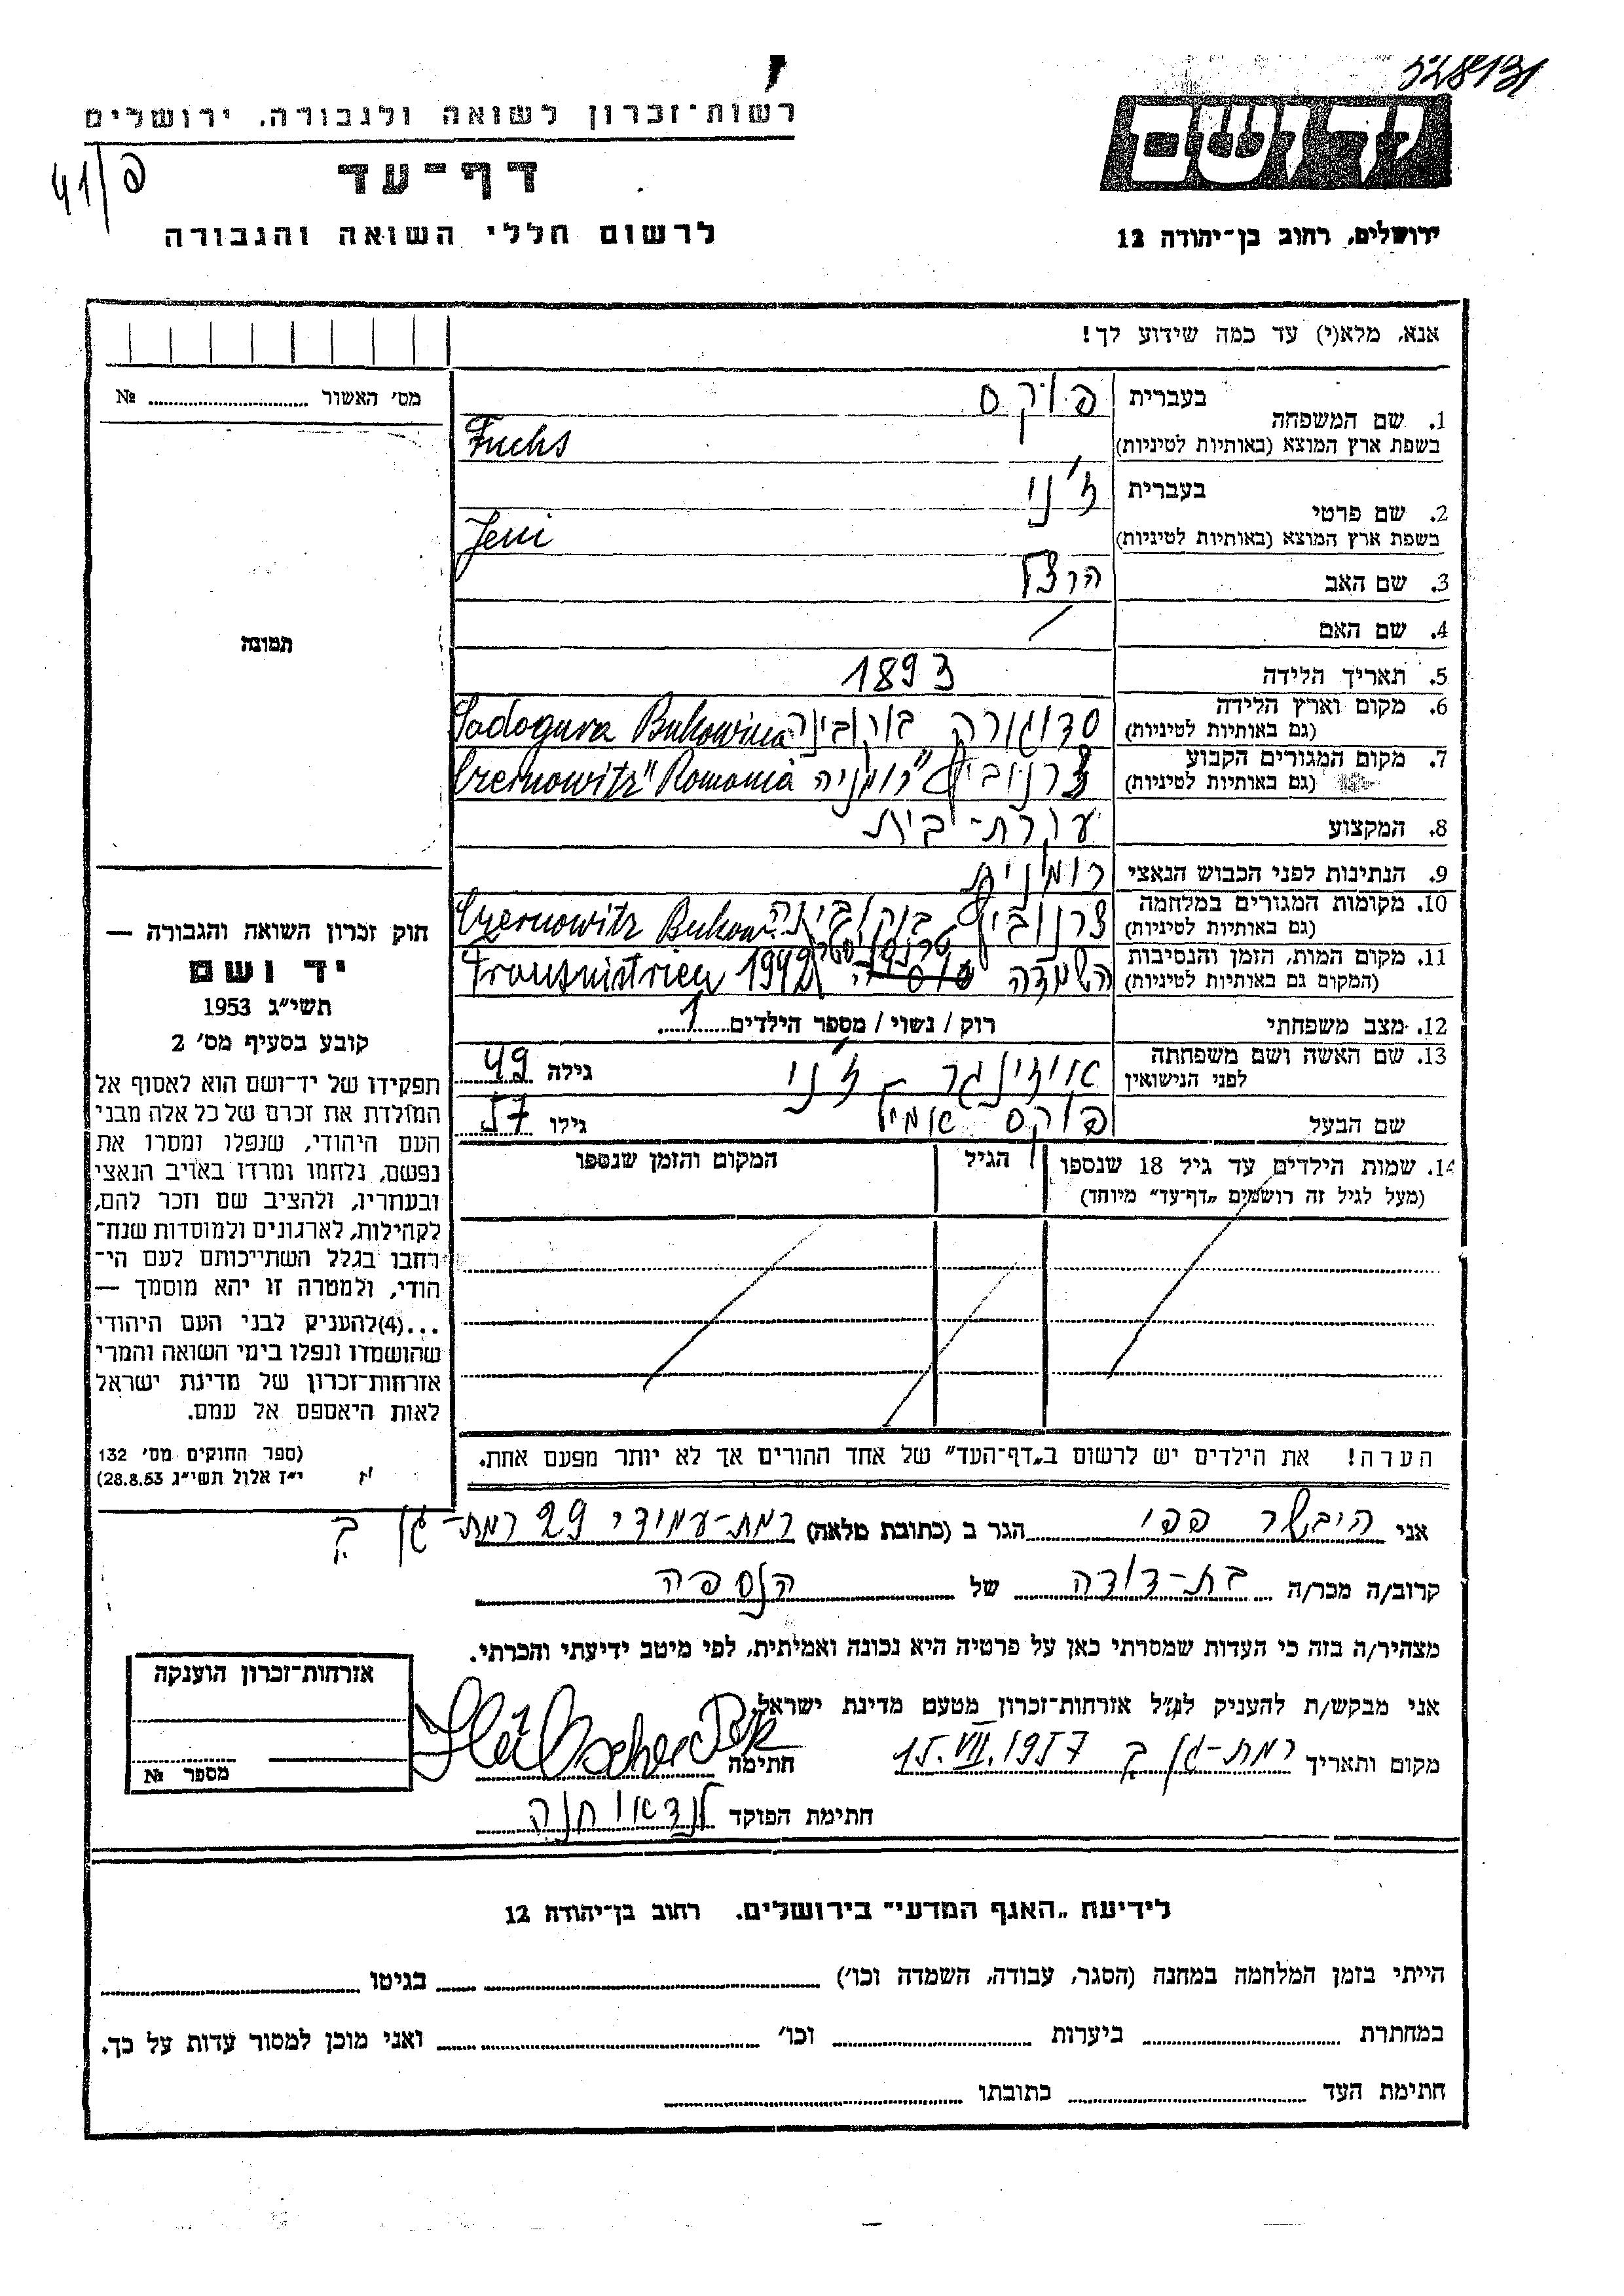 528131
רשות־זכרון לשואה ולגבורה, ירושלים
יד ושם
41/פ
דף־עד
לרשום חללי השואה והגבורה
ירושלים, רחוב בן־יהודה 12
אנא, מלא(י) עד כמה שידוע לך!
מס׳ האשור № 
1. שם המשפחה
בעברית פוקס
בשפת ארץ המוצא (באותיות לטיניות) Fuchs
2. שם פרטי
בעברית ז׳ני
בשפת ארץ המוצא (באותיות לטיניות) Jeni
3. שם האב הרצל
4. שם האם /
5. תאריך הלידה 1893
6. מקום וארץ הלידה (גם באותיות לטיניות) סדוגורה בוקובינה Sadogura Bukowina
7. מקום המגורים הקבוע (גם באותיות לטיניות) צרנוביץ״ רומניה Czernowitz" Romania
8. המקצוע עקרת-בית
9. הנתינות לפני הכבוש הנאצי רומנית
10. מקומות המגורים במלחמה (גם באותיות לטיניות) צרנוביץ בוקובינה Czernowitz Bukow.
11. מקום המות, הזמן והנסיבות (המקום גם באותיות לטיניות) השמדה Transnistrien 1942
12. מצב משפחתי רוק / נשוי / מספר הילדים 1
13. שם האשה ושם משפחתה לפני הנישואין אויזינגר – ז׳ני גילה 49
שם הבעל פוקס אמיל גילו 57
14. שמות הילדים עד גיל 18 שנספו (מעל לגיל זה רושמים „דף־עד״ מיוחד)
הגיל
המקום והזמן שנספו
הערה! את הילדים יש לרשום ב„דף־העד״ של אחד ההורים אך לא יותר מפעם אחת.
תמונה
חוק זכרון השואה והגבורה —
יד ושם
תשי״ג 1953
קובע בסעיף מס׳ 2
תפקידו של יד־ושם הוא לאסוף אל
המולדת את זכרם של כל אלה מבני
העם היהודי, שנפלו ומסרו את
נפשם, נלחמו ומרדו באויב הנאצי
ובעוזריו, ולהציב שם וזכר להם,
לקהילות, לארגונים ולמוסדות שנח־
רבו בגלל השתייכותם לעם הי־
הודי, ולמטרה זו יהא מוסמך —
...(4) להעניק לבני העם היהודי
שהושמדו ונפלו בימי השואה והמרי
אזרחות־זכרון של מדינת ישראל
לאות היאספם אל עמם.
(ספר החוקים מס׳ 132
י״ז אלול תשי״ג 28.8.53)
אני היבשר פפי הגר ב (כתובת מלאה) רמת-עמידר 29 רמת-גן ב
קרוב/ה מכר/ה בת-דודה של הנספה
מצהיר/ה בזה כי העדות שמסרתי כאן על פרטיה היא נכונה ואמיתית, לפי מיטב ידיעתי והכרתי.
אני מבקש/ת להעניק לנ״ל אזרחות־זכרון מטעם מדינת ישראל.
מקום ותאריך רמת-גן ב 15.VII.1957 חתימה
חתימת הפוקד לנדאו חנה
אזרחות־זכרון הוענקה
מספר №
לידיעת „האגף המדעי״ בירושלים. רחוב בן־יהודה 12
הייתי בזמן המלחמה במחנה (הסגר, עבודה, השמדה וכו׳) בגיטו
במחתרת ביערות וכו׳ ואני מוכן למסור עדות על כך.
חתימת העד כתובתו